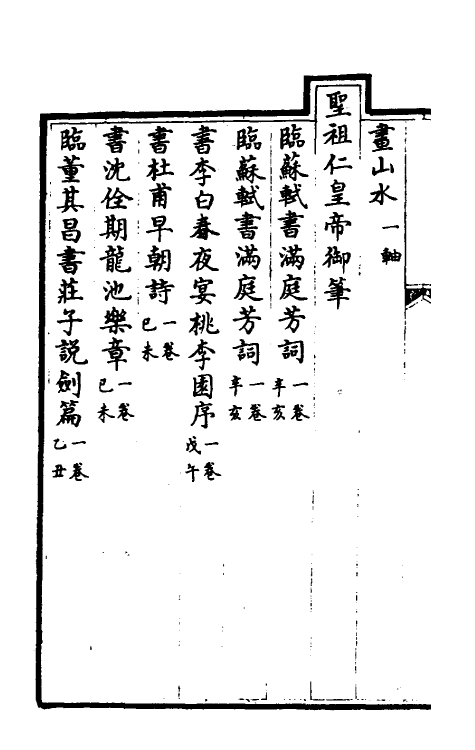 畫山水一軸
聖祖仁皇帝御筆
臨蘇軾書滿庭芳詞一卷辛亥
臨蘇軾書滿庭芳詞一卷辛亥
書李白春夜宴桃李園序一卷戊午
書杜甫早朝詩一卷己未
書沈佺期龍池樂章一卷己未
臨董其昌書莊子說劍篇一卷乙丑